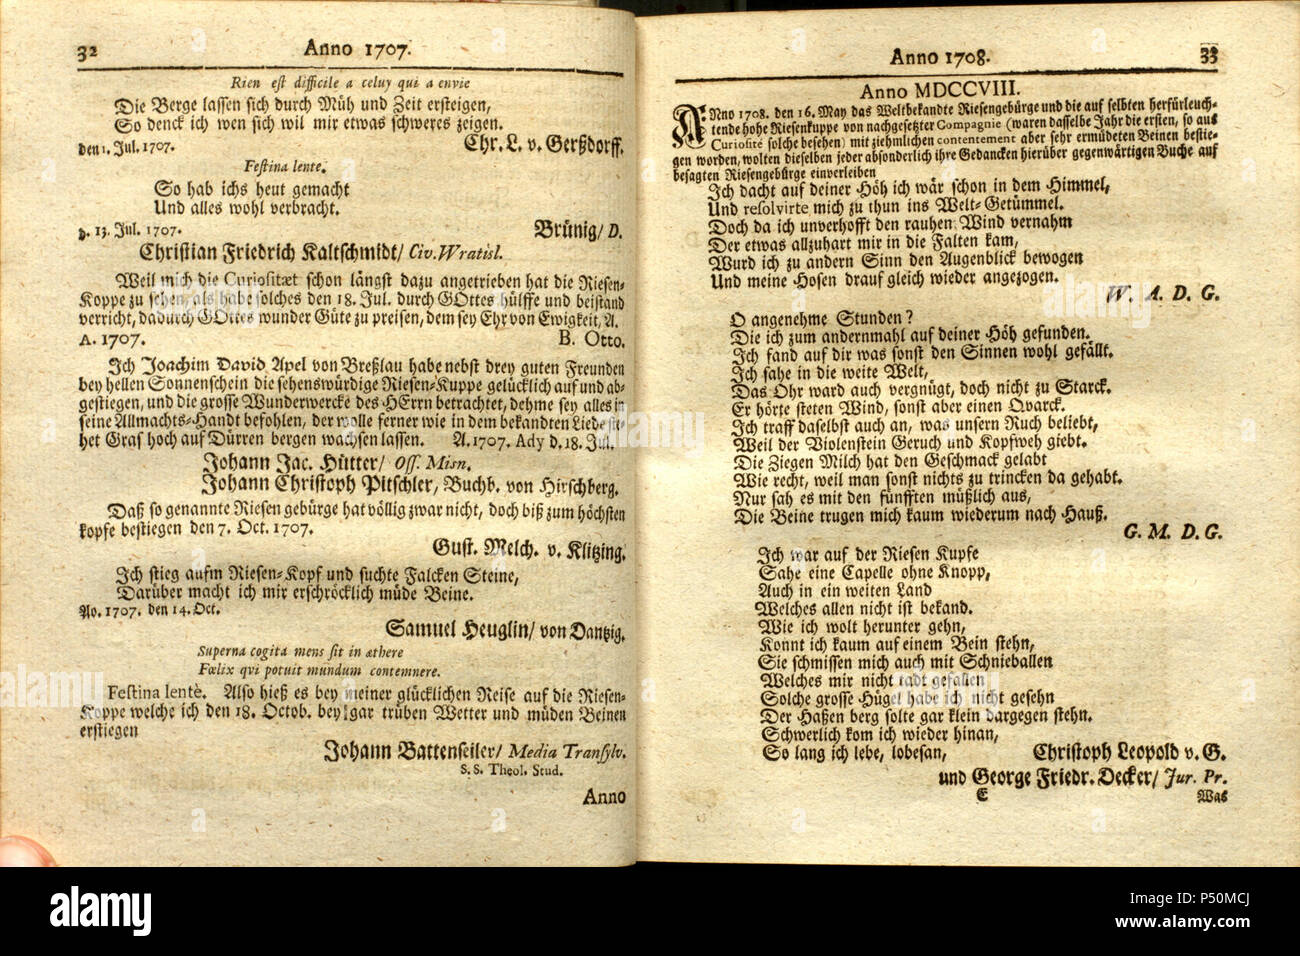 32 Anno 1707.
Rien est difficile a celuy qui a envie
Die Berge lassen sich durch Müh und Zeit ersteigen,
So denck ich wen sich wil mir etwas schweres zeigen.
den 1. Jul. 1707. Chr. L. v. Gerßdorff.
Festina lente.
So hab ichs heut gemacht
Und alles wohl verbracht.
d. 13. Jul. 1707. Brünig/ D.
Christian Friedrich Kaltschmidt/ Civ. Wratisl.
Weil mich die Curiositæt schon längst dazu angetrieben hat die Riesen-
Koppe zu sehen, als habe solches den 18. Jul. durch GOttes hülffe und beistand
verricht, dadurch GOttes wunder Güte zu preisen, dem sey Ehr von Ewigkeit, A.
A. 1707. B. Otto.
Ich Joachim David Apel von Breßlau habe nebst drey guten Freunden
bey hellen Sonnenschein die sehenswürdige Riesen-Kuppe gelücklich auf und ab-
gestiegen, und die grosse Wunderwercke des HErrn betrachtet, dehme sey alles in
seine Allmachts-Handt befohlen, der wolle ferner wie in dem bekandten Liede ste-
het Graß hoch auf Dürren bergen wachsen lassen. A. 1707. Ady d. 18. Jul.
Johann Jac. Hütter/ Oss. Misn.
Johann Christoph Pitschler, Buchb. von Hirschberg.
Daß so genannte Riesen gebürge hat völlig zwar nicht, doch biß zum höchsten
kopfe bestiegen den 7. Oct. 1707.
Gust. Melch. v. Klitzing.
Ich stieg aufm Riesen-Kopf und suchte Falcken Steine,
Darüber macht ich mir erschröcklich müde Beine.
Ao. 1707. den 14. Oct.
Samuel Heuglin/ von Dantzig.
Superna cogita mens sit in æthere
Fœlix qvi potuit mundum contemnere.
Festina lentè. Also hieß es bey meiner glücklichen Reise auf die Riesen-
Koppe welche ich den 18. Octob. bey gar trüben Wetter und müden Beinen
erstiegen
Johann Battenseiler/ Media Transylv.
S. S. Theol. Stud.
Anno
Anno 1708. 33
Anno MDCCVIII.
ANno 1708. den 16. May das Weltbekandte Riesengebürge und die auf selbten herfürleuch-
tende hohe Riesenkuppe von nachgesetzter Compagnie (waren dasselbe Jahr die ersten, so aus
Curiosité solche besehen) mit ziehmlichen contentement aber sehr ermüdeten Beinen bestie-
gen worden, wolten dieselben jeder absonderlich ihre Gedancken hierüber gegenwärtigen Buche auf
besagten Riesengebürge einverleiben
Ich dacht auf deiner Höh ich wär schon in dem Himmel,
Und resolvirte mich zu thun ins Welt-Getümmel.
Doch da ich unverhofft den rauhen Wind vernahm
Der etwas allzuhart mir in die Falten kam,
Wurd ich zu andern Sinn den Augenblick bewogen
Und meine Hosen drauf gleich wieder angezogen.
W. A. D. G.
O angenehme Stunden?
Die ich zum andernmahl auf deiner Höh gefunden.
Ich fand auf dir was sonst den Sinnen wohl gefällt.
Ich sahe in die weite Welt,
Das Ohr ward auch vergnügt, doch nicht zu Starck.
Er hörte steten Wind, sonst aber einen Qvarck.
Ich traff daselbst auch an, was unsern Ruch beliebt,
Weil der Violenstein Geruch und Kopfweh giebt.
Die Ziegen Milch hat den Geschmack gelabt
Wie recht, weil man sonst nichts zu trincken da gehabt.
Nur sah es mit den fünfften müßlich aus,
Die Beine trugen mich kaum wiederum nach Hauß.
G. M. D. G.
Ich war auf der Riesen Kupfe
Sahe eine Capelle ohne Knopp,
Auch in ein weiten Land
Welches allen nicht ist bekand.
Wie ich wolt herunter gehn,
Konnt ich kaum auf einem Bein stehn,
Sie schmissen mich auch mit Schnieballen
Welches mir nicht tadt gefallen
Solche grosse Hügel habe ich nicht gesehn
Der Haßen berg solte gar klein dargegen stehn.
Schwerlich kom ich wieder hinan,
So lang ich lebe, lobesan, Christoph Leopold v. G.
und George Friedr. Decker/ Jur. Pr.
E Was
alamy
P50MCJ
www.alamy.com